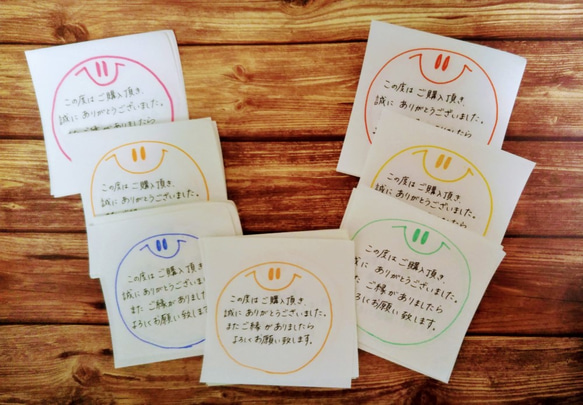 この度は ご購入頂き、
誠に ありがとうございました。
またご縁がありましたら
この度は ご購入頂き、
誠に ありがとうございました。
この度は ご購入頂き、
誠に ありがとうございました。
また ご縁がありましたら
よろしくお願い致します。
この度は ご購入頂き、
誠に ありがとうございました。
またご縁がありましたら
よろしくお願い致します。
この度は ご購入頂き、
誠に ありがとうございました。
また ご縁がありましたら
よろしくお願い致します。
この度は ご購入頂き、
誠に ありがとうございました。
この度は ご購入頂き、
誠に ありがとうございました。